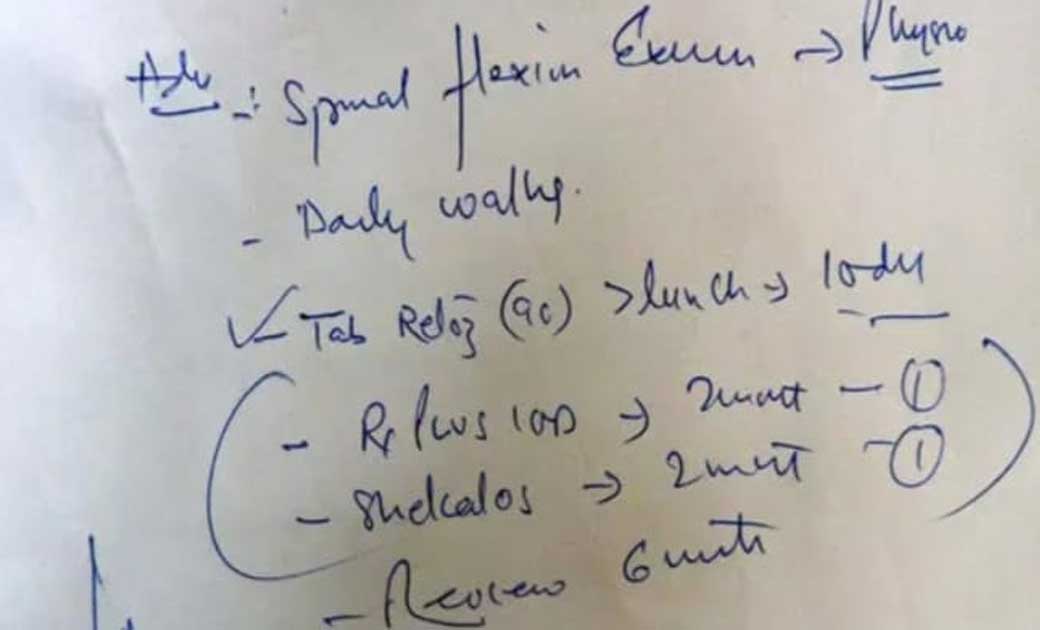 Adv -: Spinal flexion Exerc → Physio
- Daily walkg.
✓ Tab Reloz (90) > lunch → 10 day
- Rx Plus 1 OD → 2 mont - ①
- Shelcal OS → 2 mont - ①
- Review 6 mnth